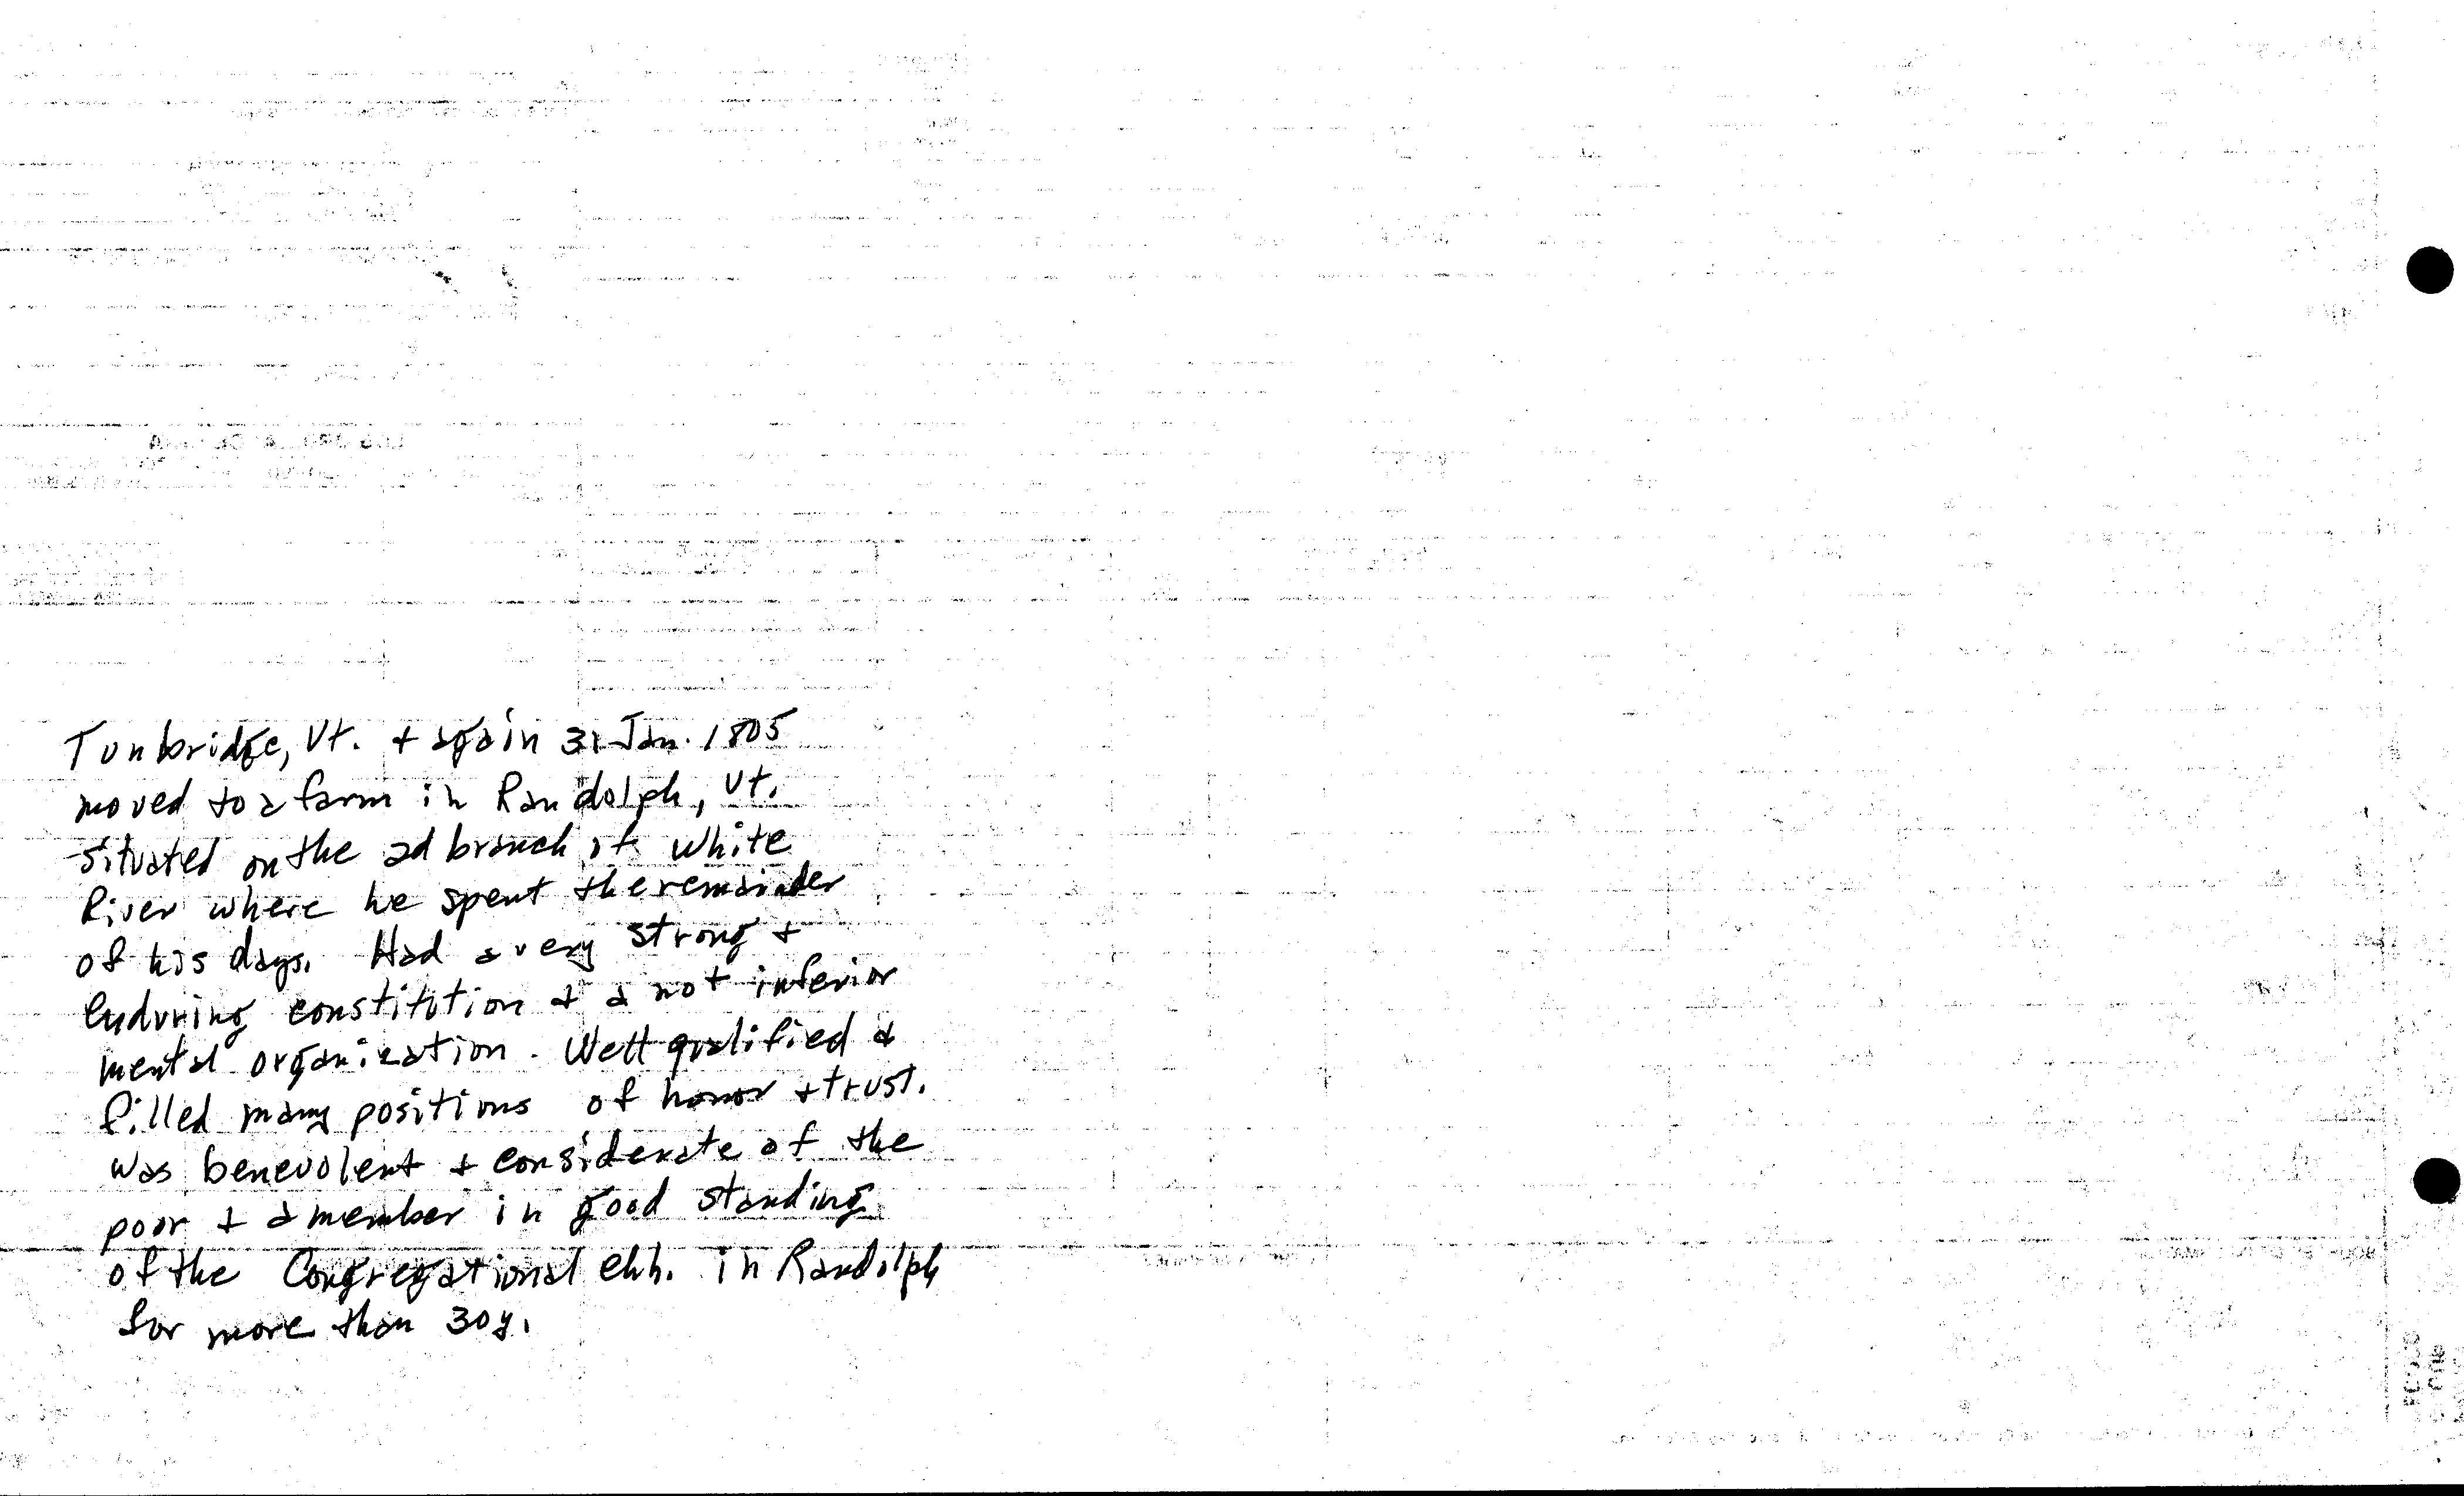 Tunbridge, Vt. + again 31 Jan. 1805
moved to a farm in Randolph, Vt.
situated on the 2d branch of White
River where he spent the remainder
of his days. Had a very strong +
enduring constitution + a not inferior
mental organization. Well qualified +
filled many positions of honor + trust.
was benevolent + considerate of the
poor + a member in good standing
of the Congregational chh. in Randolph
for more than 30 y.